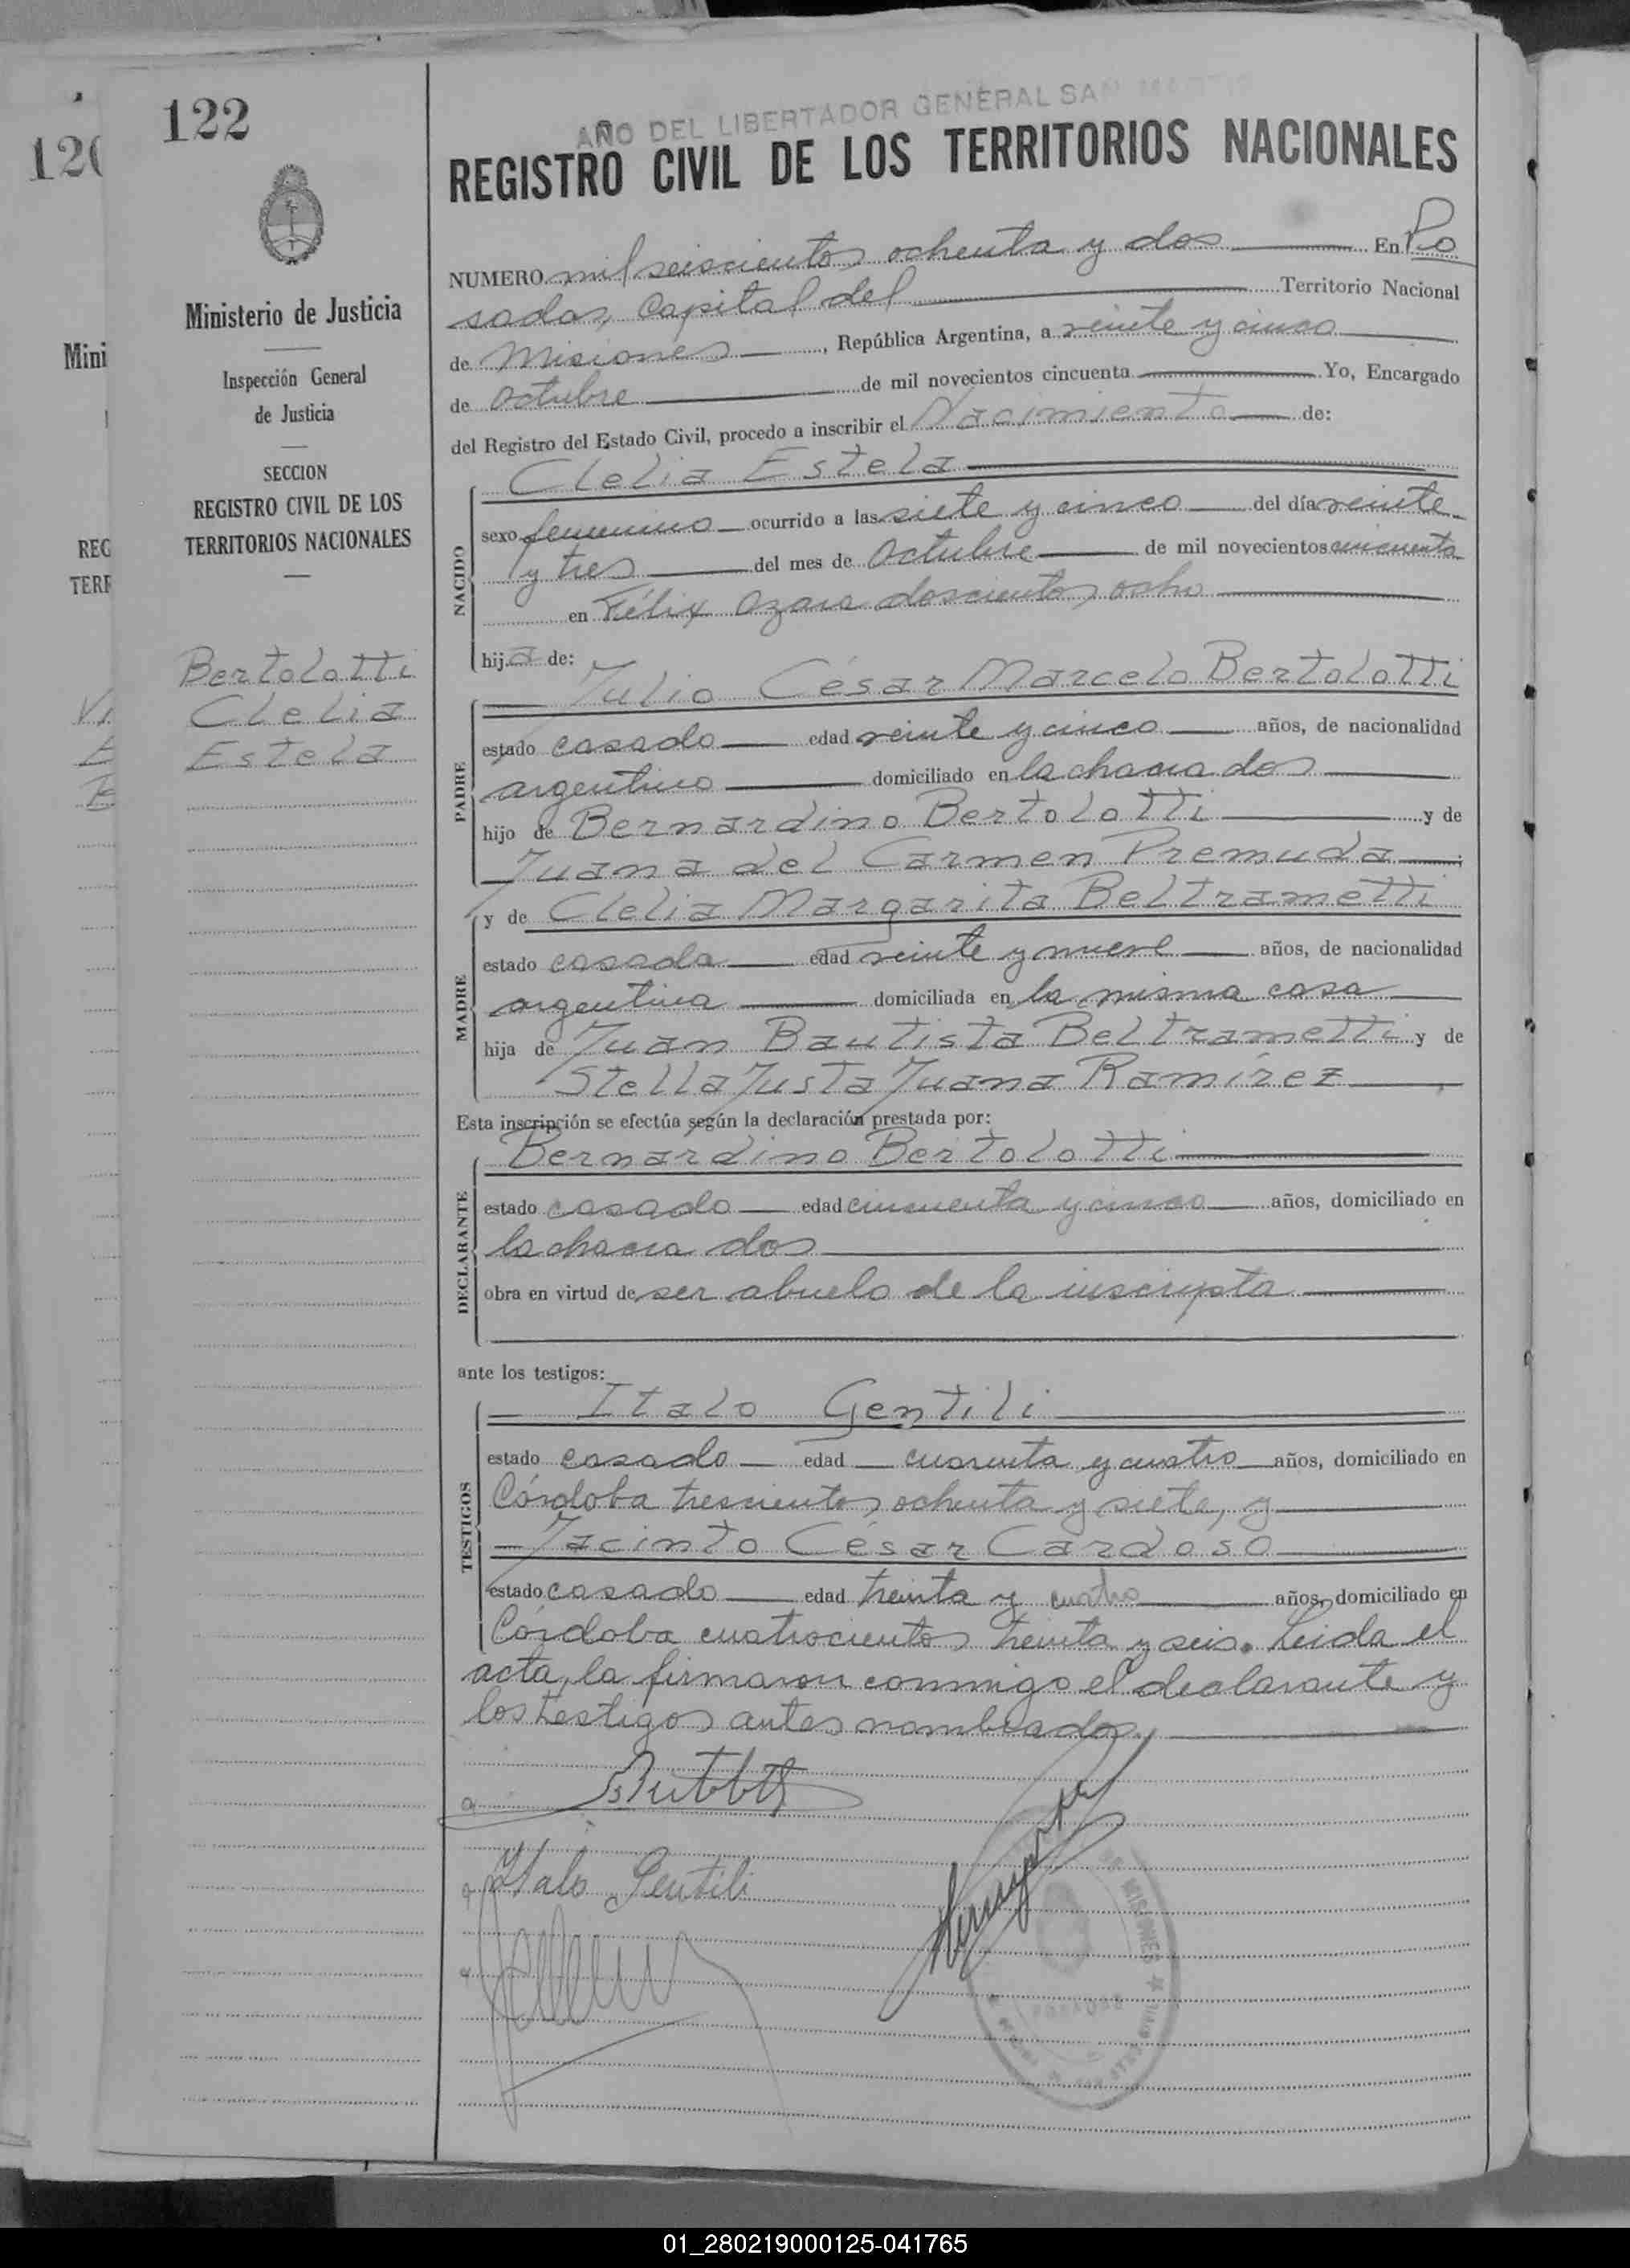 120
122
Ministerio de Justicia
Inspección General
de Justicia
SECCION
REGISTRO CIVIL DE LOS
TERRITORIOS NACIONALES
Bertolotti
Clelia
Estela
Mini
REG
TERR
AÑO DEL LIBERTADOR GENERAL SAN MARTIN
REGISTRO CIVIL DE LOS TERRITORIOS NACIONALES
NUMERO mil seiscientos ochenta y dos En Po
sadas, Capital del Territorio Nacional
de Misiones, República Argentina, a veinte y cinco
de Octubre de mil novecientos cincuenta Yo, Encargado
del Registro del Estado Civil, procedo a inscribir el Nacimiento de:
NACIDO
Clelia Estela
sexo femenino ocurrido a las siete y cinco del día veinte
y tres del mes de Octubre de mil novecientos cincuenta
en Félix Azara doscientos ocho
hija de:
PADRE
Julio César Marcelo Bertolotti
estado casado edad veinte y cinco años, de nacionalidad
argentino domiciliado en la chacra dos
hijo de Bernardino Bertolotti y de
Juana del Carmen Premuda;
MADRE
y de Clelia Margarita Beltrametti
estado casada edad veinte y nueve años, de nacionalidad
argentina domiciliada en la misma casa
hija de Juan Bautista Beltrametti y de
Stella Justa Juana Ramírez
Esta inscripción se efectúa según la declaración prestada por:
DECLARANTE
Bernardino Bertolotti
estado casado edad cincuenta y cinco años, domiciliado en
la chacra dos
obra en virtud de ser abuelo de la inscripta
ante los testigos:
TESTIGOS
Italo Gentili
estado casado edad cuarenta y cuatro años, domiciliado en
Córdoba trescientos ochenta y siete, y
Jacinto César Cardoso
estado casado edad treinta y cuatro años, domiciliado en
Córdoba cuatrocientos treinta y seis. Leida el
acta, la firmaron conmigo el declarante y
los testigos antes nombrados.
Italo Gentili
DE MISIONES
POSADAS
01_280219000125-041765